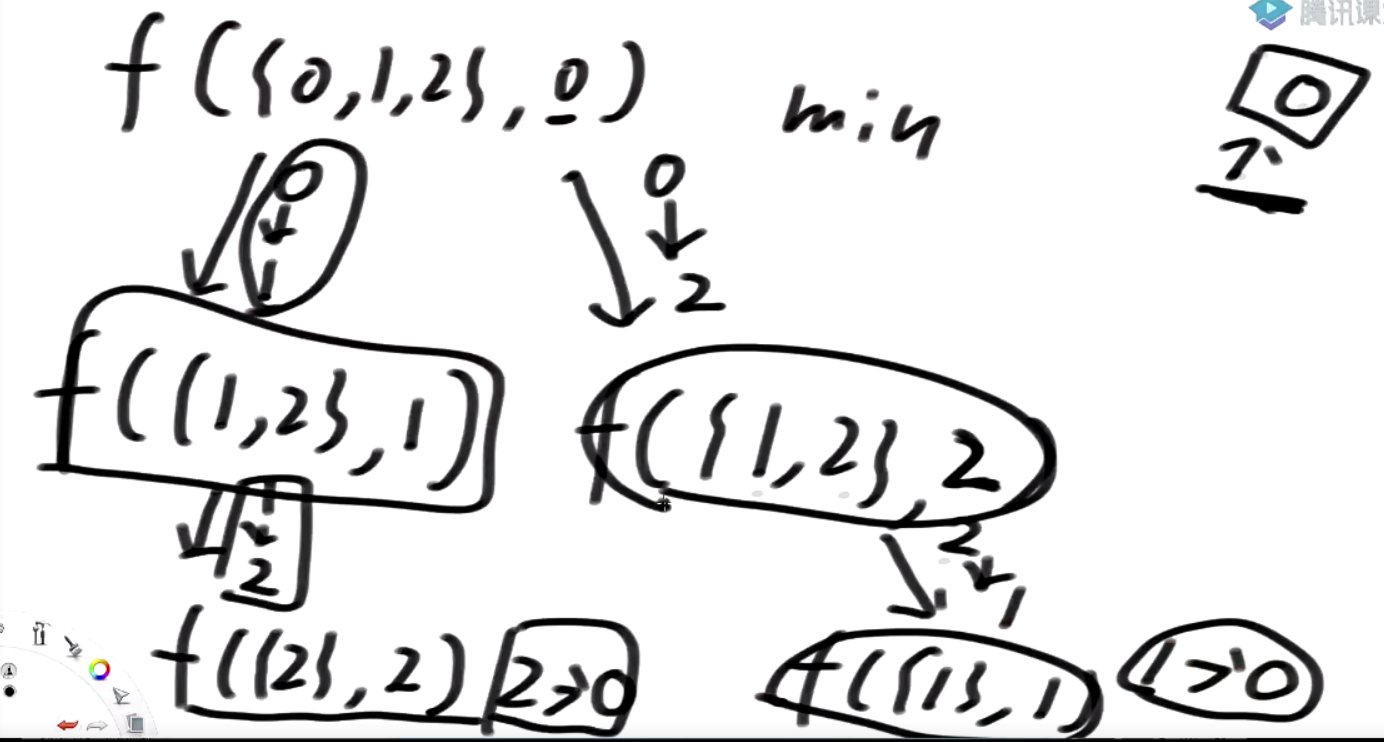 腾讯课
f({0,1,2},0) min 0
0 0 7
1 2
f({1,2},1) f({1,2},2
1 2
2 1
f({2},2) 2→0 f({1},1) 1→0